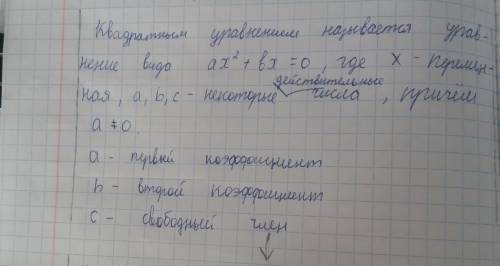 Квадратным уравнением называется урав-
нение вида ax² + bx = 0, где x - перемен-
действительные
ная, a, b, c - некоторые числа, причём
a ≠ 0.
a - первый коэффициент
b - второй коэффициент
c - свободный член
↓